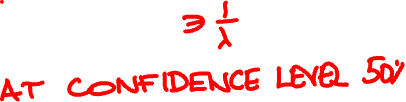 ∋ 1/λ
AT CONFIDENCE LEVEL 50%